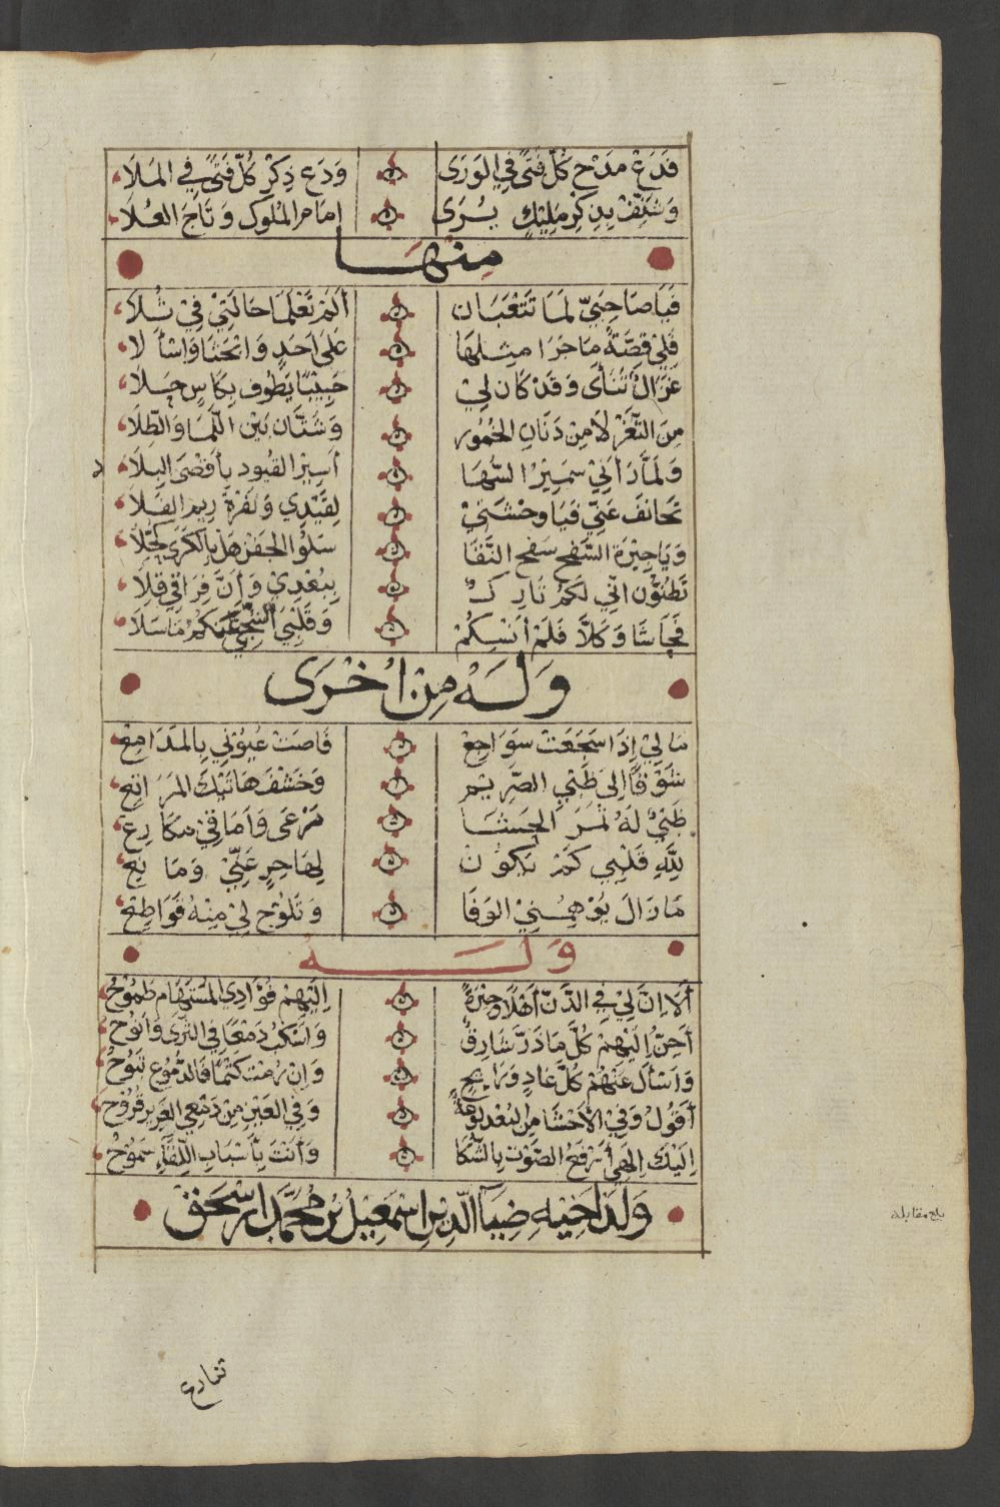 فَدَعْ مَدْحَ كُلِّ فَتًى فِي الوَرَى وَدَعْ ذِكْرَ كُلِّ فَتًى فِي المَلَا
وَشَنِّفْ بِذِكْرِ مَلِيْكٍ يُرَى اِمَامَ المُلُوكِ وَتَاجَ العُلَا
مِنْهَا
فَيَا صَاحِبَيَّ لِمَا تَتْعَبَانِ أَلَمْ تَعْلَمَا حَالَتِيْ فِيْ
فَلِيْ قِصَّةٌ مَا جَرَا مِثْلُهَا عَلَى اَحَدٍ وَابْحَثَا وَاسْأَلَا
غَزَالٌ تَنَأَى وَقَدْ كَانَ لِيْ حَبِيْبًا يَطُوفُ بِكَاسٍ
مِنَ الثَّغْرِ لَا مِنْ دِنَانِ الخُمُورِ وَشَتَّانَ بَيْنَ اللَّمَا وَالطِّلَا
وَلَمَّا رَأَنِيْ سَمِيْرَ السُّهَا أَسِيْرَ القُيُودِ بِأَقْصَى البِلَا
تَجَانَفَ عَنِّي فَيَا وَحْشَتِيْ لِقَيْدِي وَنَفْرَةُ رِيمِ الفَلَا
وَيَا جِيْرَةَ السَّفْحِ سَفْحِ النَّقَا سَلُوا الجَفْنَ هَلْ بِالْكَرَى كُحِّلَا
تَظُنُّونَ انِّي لَكُمْ تَارِكٌ بِبُعْدِيْ وَأَنَّ فِرَاقِي قِلَا
فَحَاشَا وَكَلَّا فَلَمْ أَنْسَكُمْ وَقَلْبِي الشَّجِيْ عَنْكُمُ مَا سَلَا
وَلَهُ مِنْ اُخْرَى
مَا لِيْ إِذَا سَجَعَتْ سَوَاجِعْ فَاضَتْ عُيُوْنِي بِالمَدَامِعْ
شَوْقًا إِلَى ظَبْيِ الصَّرِيْمِ وَخِشْفِ هَاتِيْكَ المَرَاتِعْ
ظَبْيٌ لَهُ ثَمَرُ الحَشَا مَرْعًى وَأَمَاقِيْ مَكَارِعْ
لِلَّهِ قَلْبِي كَمْ يَكُونُ لِهَاجِرٍ عَنِّيْ وَمَانِعْ
مَا زَالَ يُوْهِمُنِيْ الوَفَا وَتَلُوْحُ لِيْ مِنْهُ قَوَاطِعْ
وَلَهُ
أَلَا اِنَّ لِيْ فِي أَهْلًا وَجِيْرَةً اِلَيْهِمْ فُؤَادِي المُسْتَهَامُ طَمُوْحُ
أَحِنُّ إِلَيْهِمْ كُلَّمَا ذَرَّ شَارِقٌ وَاَسْكُبُ دَمْعًا فِي الثَّرَى وَأَنُوْحُ
وَاَسْأَلُ عَنْهُمْ كُلَّ غَادٍ وَرَايِحٍ وَإِنْ رُمْتُ كَتْمًا فَالدُّمُوْعُ تَبُوْحُ
أَقُوْلُ وَفِي الأَحْشَا مِنَ البُعْدِ لَوْعَةٌ وَفِي العَيْنِ مِنْ دَمْعِي الغَزِيرِ قُرُوْحُ
اِلَيْكَ اِلَهِي أَرْفَعُ الصَّوْتَ بِالشَّكَا وَأَنْتَ بِأَسْبَابِ اللِّقَاءِ سَمُوْحُ
وَلَدُ اَخِيْهِ ضِيَآ الدِّيْنِ اسْمَعِيْلُ بْنُ مُحَمَّدِ ابْنِ اسْحَقَ
بلغ مقابلة